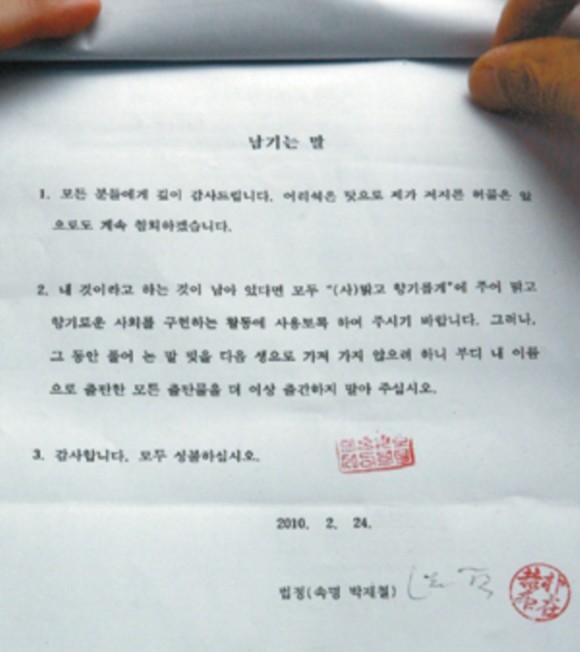 남기는 말
1. 모든 분들에게 깊이 감사드립니다. 어리석은 탓으로 제가 저지른 허물은 앞
으로도 계속 참회하겠습니다.
2. 내 것이라고 하는 것이 남아 있다면 모두 "(사)맑고 향기롭게"에 주어 맑고
향기로운 사회를 구현하는 활동에 사용토록 하여 주시기 바랍니다. 그러나,
그 동안 풀어 논 말 빚을 다음 생으로 가져 가지 않으려 하니 부디 내 이름
으로 출판한 모든 출판물을 더 이상 출간하지 말아 주십시오.
3. 감사합니다. 모두 성불하십시오.
2010. 2. 24.
법정(속명 박재철)